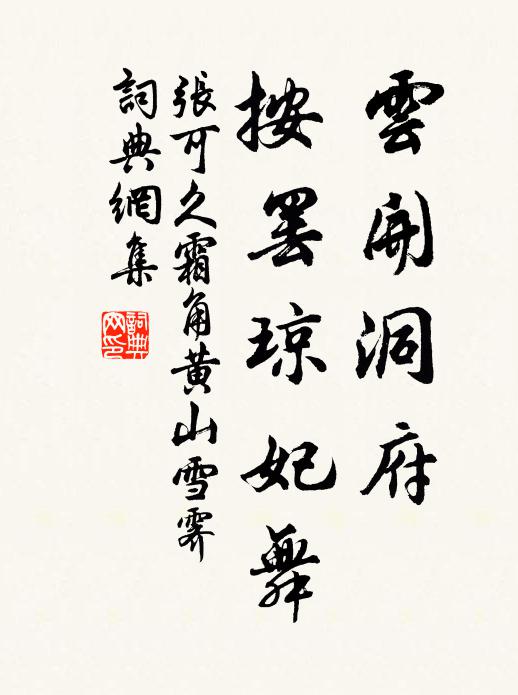 雲開洞府
按罷琼妃舞
張可久霜角黄山雪霽
詞典網集
詞典網印